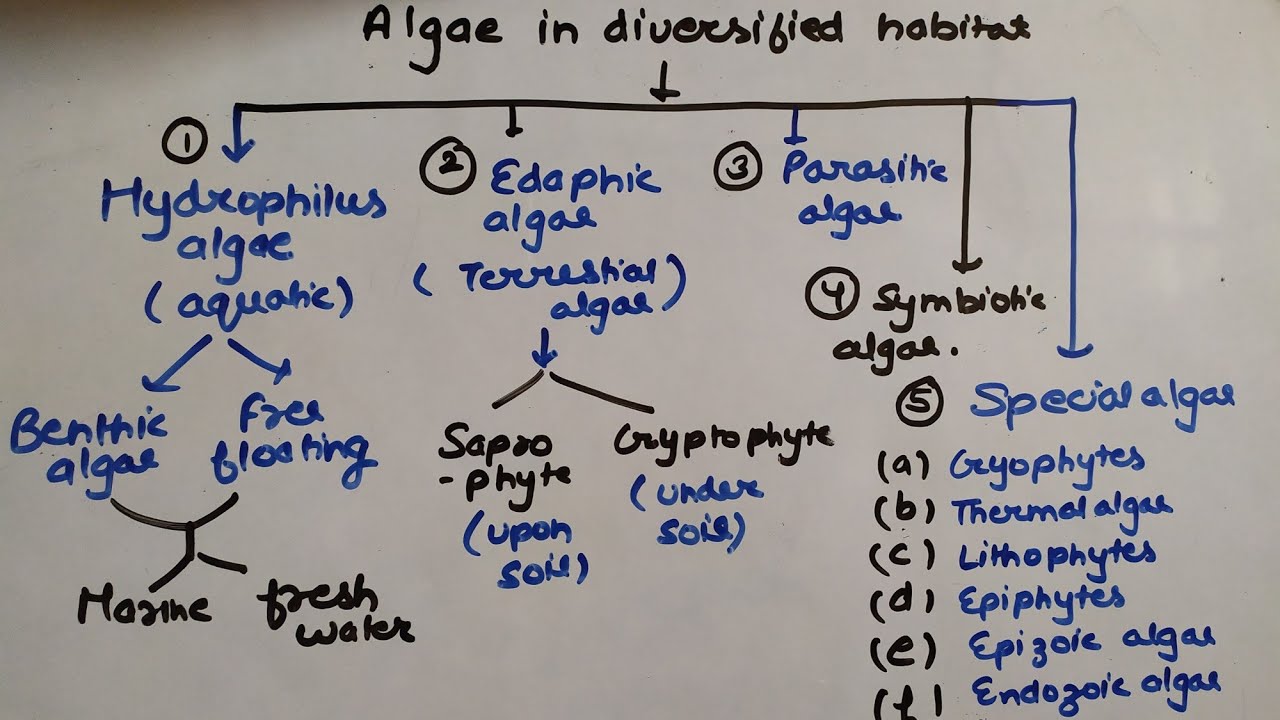 Algae in diversified habitat
1
Hydrophilus
algae
(aquatic)
Benthic
algae
Free
floating
Marine
fresh
water
2
Edaphic
algae
(Terrestial
algae)
Sapro
-phyte
(upon
soil)
Cryptophyte
(under
soil)
3
Parasitic
algae
4
Symbiotic
algae.
5
Special algae
(a) Cryophytes
(b) Thermal algae
(c) Lithophytes
(d) Epiphytes
(e) Epizoic algae
(f) Endozoic algae